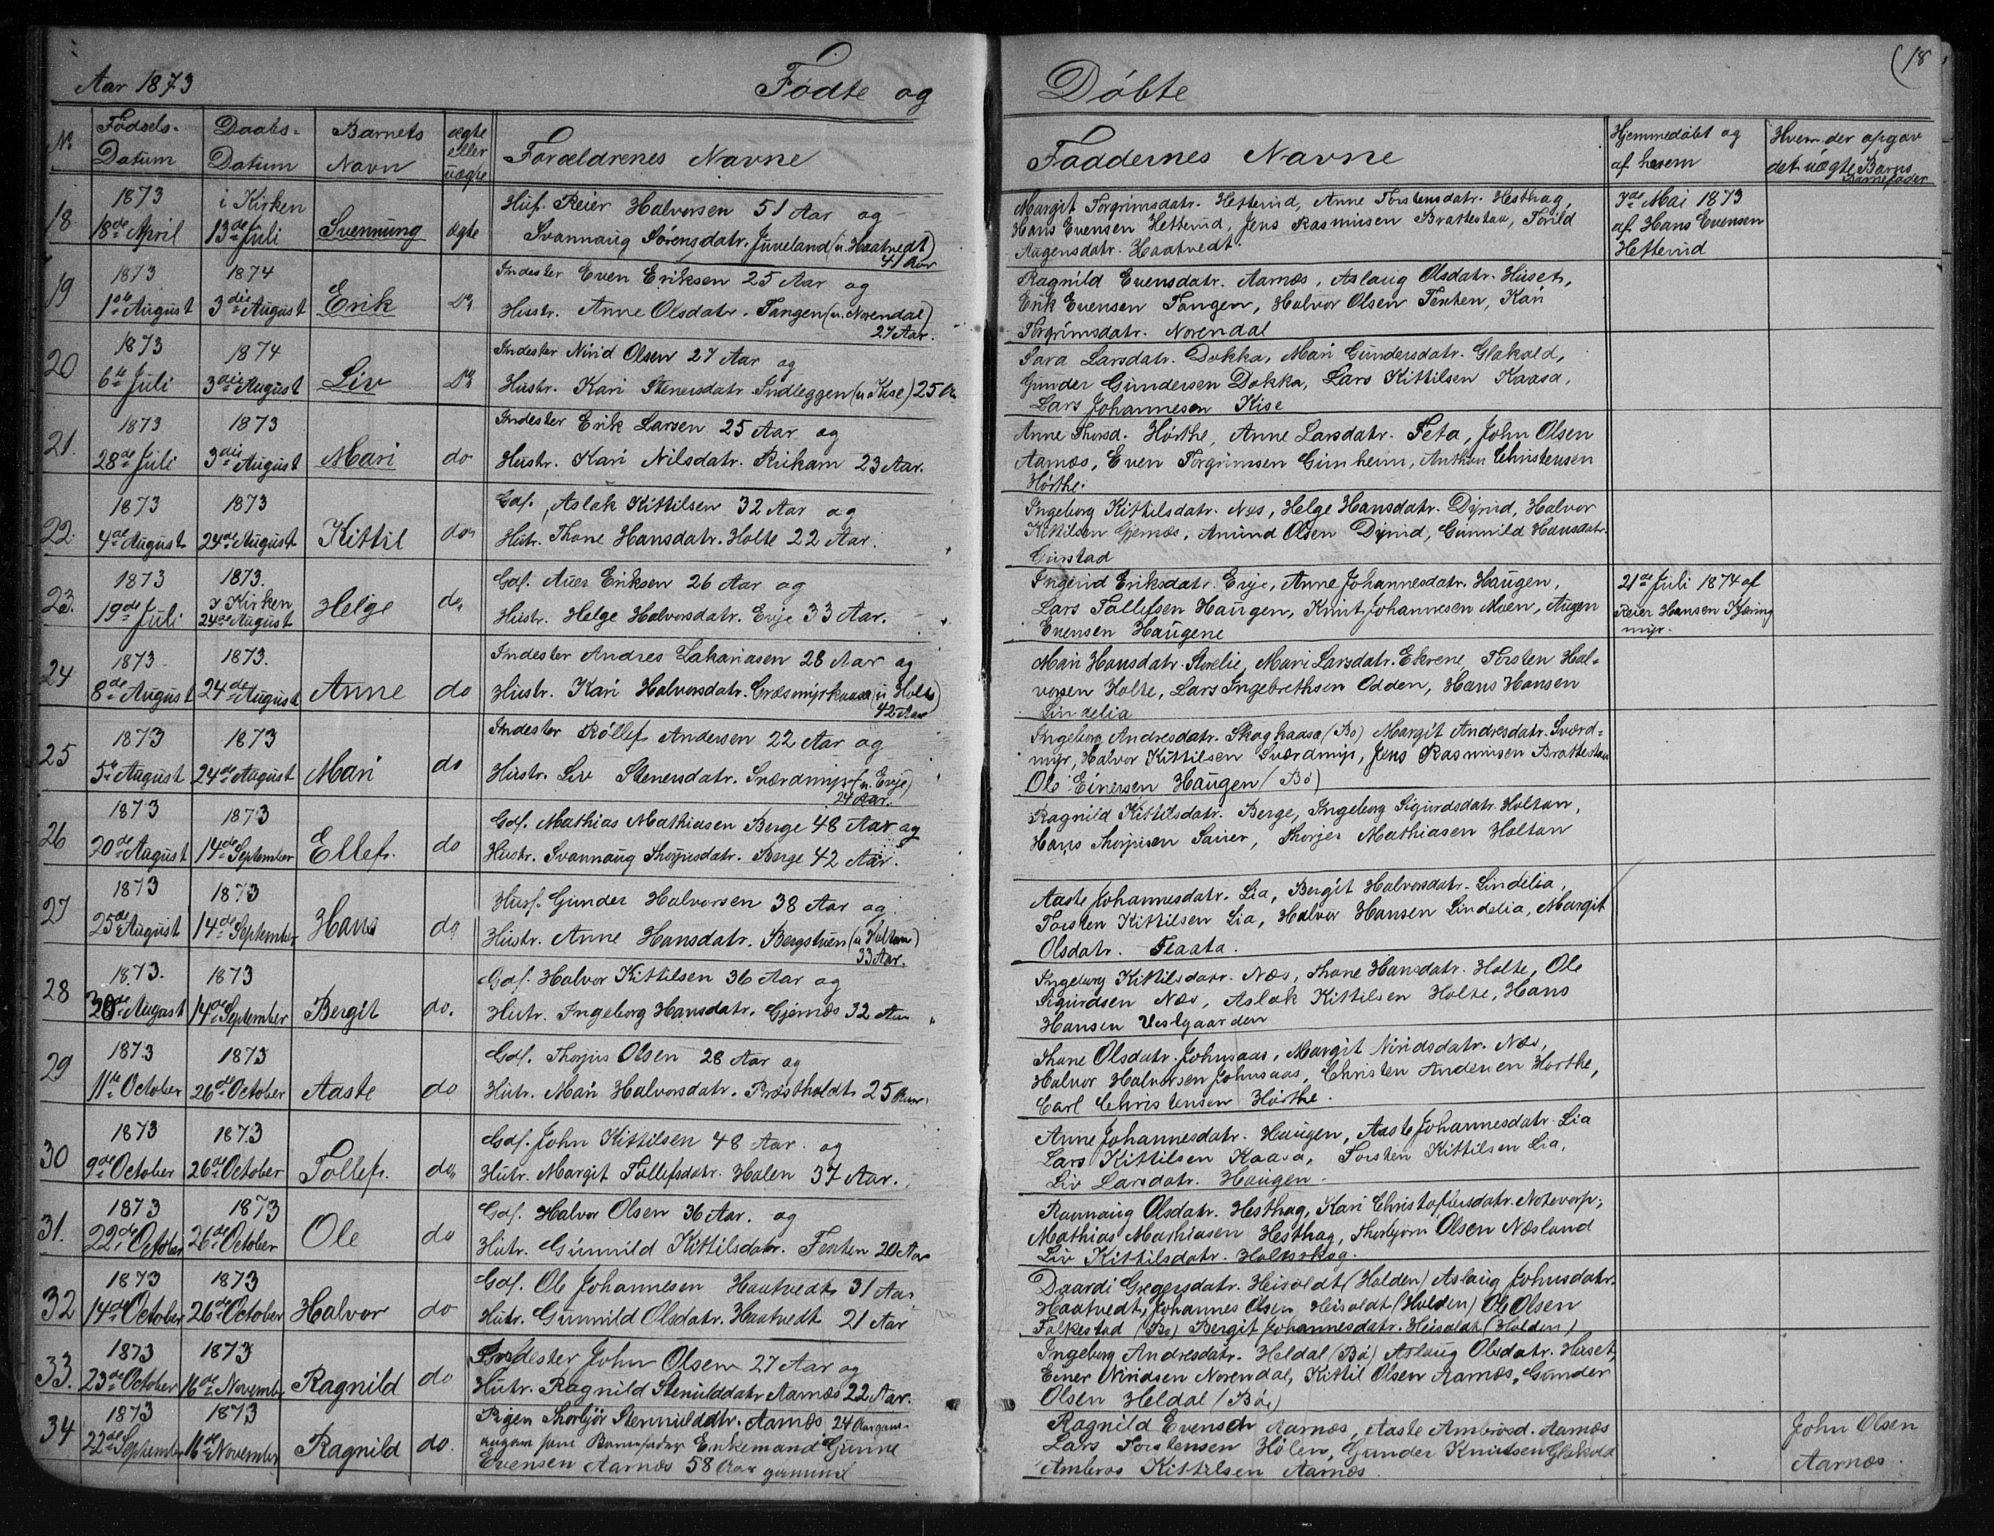 (18
Aar 1873 Fødte og Døbte
Nr. Fødsels-Datum Daabs-Datum Barnets Navn ægte eller uægte Forældrenes Navne Faddernes Navne Hjemmedøbt og af hvem Hvem der opgav det uægte Barns Barnefader
18 1873 18de April i Kirken 13de Juli Svennung ægte
Huf. Reier Halvorsen 51 Aar og
Svannaug Sørensdatr. Juveland (u. Haatvedt) 41 Aar
Margit Torgrimsdatr. Hetterud, Anne Torstensdatr. Hesthag,
Hans Evensen Hetterud, Jens Rasmussen Brattestau, Torild
Aagensdatr. Haatvedt.
7de Mai 1873
af Hans Evensen
Hetterud
19 1873 1ste August 1874 3die August Erik Do
Inderster Even Eriksen 25 Aar og
Hustr. Anne Olsdatr. Tangen (u. Norendal) 27 Aar.
Ragnild Evensdatr. Aarnæs, Aslaug Olsdatr. Huset,
Erik Evensen Tangen, Halvor Olsen Tenten, Kari
Torgrimsdatr. Norendal
20 1873 6te Juli 1874 3die August Liv Do
Indester Nirid Olsen 27 Aar og
Hustr. Kari Stenersdatr. Indleggen (u. Kise) 25 Aar
Sara Larsdatr. Dokka, Mari Gundersdatr. Glekald,
Gunder Gundersen Dokka, Lars Kittilsen Kaasa,
Lars Johannesen Kise
21. 1873 28de Juli 1873 3die August Mari do
Indester Erik Larsen 25 Aar og
Hustr. Kari Nilsdatr. Rickam 23 Aar.
Anne Thorsd. Hørthe, Anne Larsdatr. Seta, John Olsen
Aarnæs, Even Torgrimsen Gimheim, Anthon Christensen
Hørthe.
22. 1873 4de August 1873 24de August Kittil do
Gdf. Aslak Kittilsen 32 Aar og
Hutr. Thone Hansdatr. Holte 22 Aar.
Ingeborg Kittilsdatr. Næs, Helge Hansdatr. Dyrud, Halvor
Kittilsen Gjernæs, Amund Olsen Dyrud, Gunnild Hansdatr.
Gurstad
23. 1873 19de Juli 1873. i Kirken 24de August Helge do
Gdf. Auer Eriksen 26 Aar og
Hustr. Helge Halvorsdatr. Evje 33 Aar.
Ingerid Eriksdatr. Evje, Anne Johannesdatr. Haugen,
Lars Tollefsen Haugen, Knut Johannesen Moen, Augen
Evensen Haugene
21de Juli 1874 af
Reier Hansen Kjæring
myr.
24 1873 8de August 1873. 24de August Anne do
Indester Andres Zakariasen 28 Aar og
Hustr. Kari Halvorsdatr. Græsmyrkaasa (u Holte) 42 Aar
Mari Hansdatr. Storelie, Mari Larsdatr. Ekrene, Torsten Hal-
vorsen Holte, Lars Ingebrethsen Odden, Hans Hansen
Lindelia
25 1873 5te August 1873 24de August Mari do
Indester Rollef Andersen 22 Aar og
Hustr. Liv Stenersdatr. Sværdmyr (u. Evje) 24 Aar.
Ingeborg Andresdatr. Skoghaasa (Bø) Margit Andresdatr. Sværd-
myr, Halvor Kittilsen Sværdmyr, Jens Rasmusen Brattestau
Ole Einersen Haugen (Bø)
26 1873 20de August 1873 14de September Ellef. do
Gdf. Mathias Mathiasen Berge 48 Aar og
Hustr. Svannaug Thorjusdatr. Berge 42 Aar.
Ragnild Kittilsdatr. Berge, Ingeborg Sigurdsdatr. Holtan,
Hans Thorjusen Sauer, Thorjer Mathiasen Holtan
27 1873 25de August 1873 14de September Hans do
Husf. Gunder Halvorsen 38 Aar og
Hustr. Anne Hansdatr. Bergstuen (u Holtan) 33 Aar.
Aaste Johannesdatr. Lia, Bergit Halvorsdatr. Lindelia,
Torsten Kittilsen Lia, Halvor Hansen Lindelia, Margit
Olsdatr. Flaata.
28 1873. 30de August 1873 14de September Bergit do.
Gdf. Halvor Kittilsen 36 Aar og
Hutr. Ingeborg Hansdatr. Gjernæs 32 Aar
Ingeborg Kittilsdatr. Næs, Thone Hansdatr. Holte, Ole
Sigurdsen Næs, Aslak Kittilsen Holte, Hans
Hansen Vestgaarden
29 1873 11te October 1873 26de October Aaste do
Gdf. Thorjus Olsen 28 Aar og
Hutr. Mari Halvorsdatr. Præstholdt 25 Aar.
Thone Olsdatr. Johnsaas, Margit Niridsdatr. Næs,
Halvor Halvorsen Johnsaas, Christen Andersen Hørthe,
Carl Christensen Hørthe.
30 1873 9de October 1873 26de October Tollef. do
Gdf. John Kittilsen 48 Aar. og
Hutr. Margit Tollefsdatr. Halen 37 Aar.
Anne Johannesdatr. Haugen, Aaste Johannesdatr. Lia
Lars Kittilsen Kaasa, Torsten Kittilsen Lia,
Liv Larsdatr. Haugen.
31. 1873 22de October 1873 26de October Ole do
Gdf. Halvor Olsen 36 Aar. og
Hutr. Gunnild Kittilsdatr. Tenten 20 Aar
Ravnaug Olsdatr. Hesthag, Kari Christofersdatr. Notevarp,
Mathias Mathiasen Hesthag, Thorbjørn Olsen Næsland
Liv Kittilsdatr. Holteskog.
32 1873 14de October 1873 26de October Halvor do
Gdf. Ole Johannesen Haatvedt 31 Aar
Hutr. Gunnild Olsdatr. Haatvedt 21 Aar
Daardi Gregersdatr. Heisoldt (Holden) Aslaug Johnsdatr.
Haatvedt, Johannes Olsen Heisoldt (Holden) Ole Olsen
Folkestad (Bø) Bergit Johannesdatr. Heisoldt (Holden)
33. 1873 23de October 1873 16de November Ragnild do
Indester John Olsen 27 Aar og
Hutr. Ragnild Stenulddatr Aarnæs 22 Aar.
Ingeborg Andresdatr. Heldal (Bø) Aslaug Olsdatr. Huset,
Ener Niridsen Norendal, Kittil Olsen Aarnæs, Gunder
Olsen Heldal (Bøe)
34 1873 22de September 1873 16de November Ragnild do.
Pigen Thorbjør Stenulddtr. Aarnæs 24 Aar
som Barnefader Enkemand Gunne
Evensen Aarnæs 58 Aar gammel
Ragnild Evensdr Aarnæs, Aaste Ambrosd. Aarnæs
Lars Torstensen Holen, Gunder Knudsen Glekold
Ambros Kittilsen Aarnæs
John Olsen
Aarnæs.